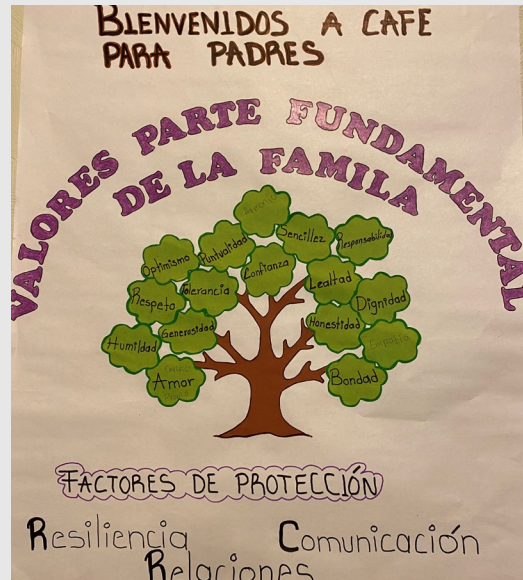 BIENVENIDOS A CAFE
PARA PADRES
VALORES PARTE FUNDAMENTAL
DE LA FAMILA
Sencillez
Responsabilidad
Puntualidad
Optimismo
Confianza
Lealtad
Tolerancia
Respeto
Dignidad
Generosidad
Honestidad
Humildad
Empatía
Amor
Bondad
FACTORES DE PROTECCIÓN
Resiliencia Comunicación
Relaciones